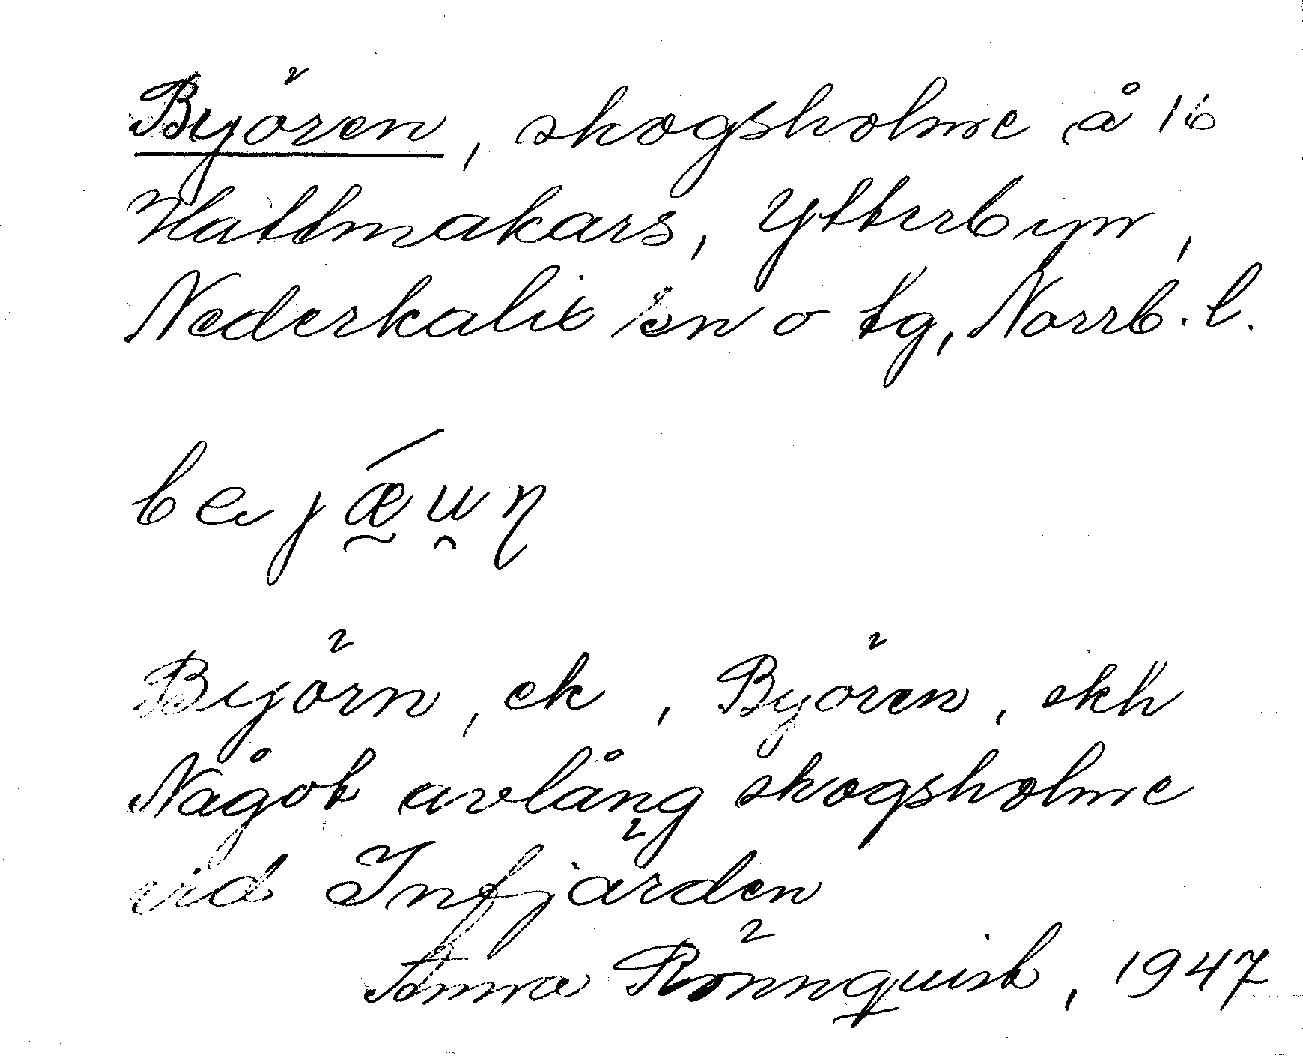 Byören, skogsholme å 16
Hattmakars, Ytterbyn,
Nederkalix sn o tg, Norrb. l.
be jǽu̯n
Byörn, ek, Byören, ekh
Något avlång skogsholme
vid Infjärden
Anna Rönnquist, 1947